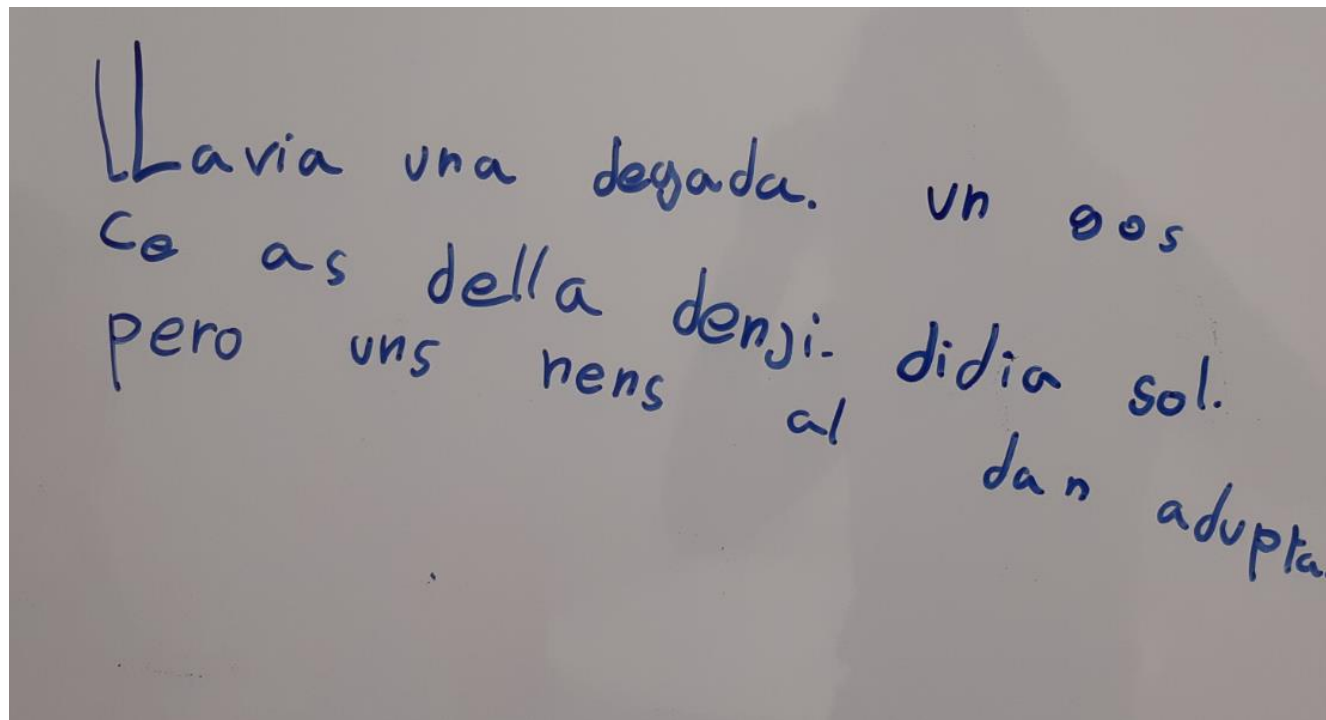 LLavia una degada. un gos
Ce as della denji. didia sol.
pero uns nens al dan adupta.